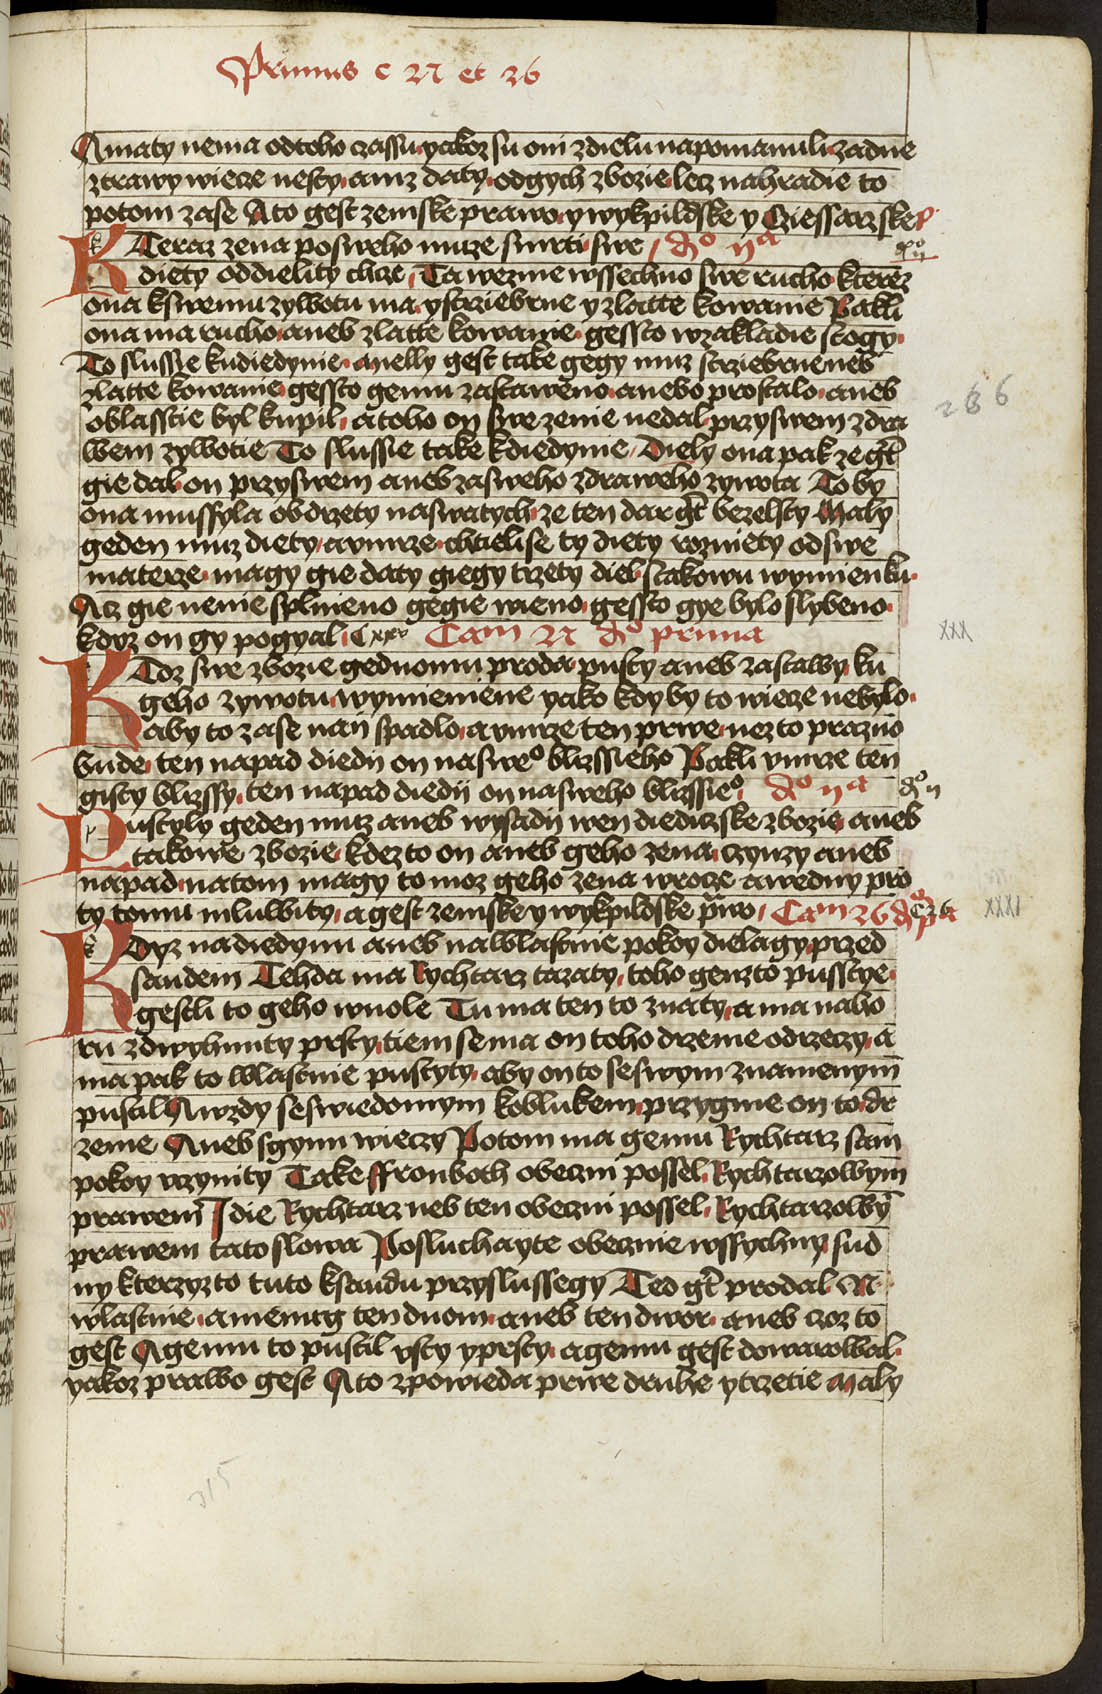 Primus c 27 et 26
Amaty nema odtoho czassu yakoz su oni zdielu napomanuli zadne
ztrawy wiecze nesty aniz daty odgych zbozie lecz nahradie to
potom zase Ato gest zemske prawo y wykpildske y Cziessarzske
KTeraz zena posweho muze smrti swe dº iiª
diety oddielity chce Ta wezme wssechno swe rucho kterez
ona kswemu zywotu ma y strziebrne y zlatte kowanie Pakli
ona ma rucho aneb zlatte kowanie gessto wzakladie stogy
To slussye kudiedynie anelly gest take gegy muz strziebrne neb
zlatte kowanie gessto gemu zastaweno anebo prostalo aneb
oblasstie byl kupil a toho on swe zenie nedal przyswem zdra
wem zywotie To slussie take kdiedynie Diely ona pak ze gt
gie dal on przyswem aneb zasweho zdraweho zywota To by
ona mussyla obdrzety naswatych ze ten dar gt bezelsty Maly
geden muz diety a umrze chtielise ty diety rozniety odswe
materze magy gie daty giegy trzety diel stakowu wymienku
Acz gie nenie splnieno gegie wieno gessto gye bylo slybeno
kdyz on gy pogyal Cxxv Cam 27 dº prima
xxx
KTdz swe zbozie gednomu proda pusty aneb zastawy ku
geho zywotu wymienienie yako kdyby to wiecze nebylo
aby to zase nan spadlo a umrze ten prwe nez to prazno
bude ten napad diedii on nasweº blizssieho Pakli umrze ten
gisty blizssy ten napad diedii on nasweho blizssieº dº iiª
dº ii
Pustyly geden muz aneb wysadii wen diediczske zbozie aneb
takowe zbozie kdezto on aneb geho zena czynzy aneb
napad natom magy to moz geho zena wrocze a wedny pro
ty tomu mluwity a gest zemske y wykpildske prawo Cam 26 dº pª
c 26
xxxi
KDyz nadiedynu aneb nawlastnie pokoy dielagy przed
saudem Tehda ma Rychtarz tazaty toho genzto pusstye
gestli to geho wuole Tu ma ten to znaty a ma naho
ru zdwyhnuty prsty tiem se ma on toho drzenie odrzeczy a
ma pak to wlastnie pustyty aby onto seswym znamenym
pustil Awzdy seswiedomym koblukem przygme on to dr
zenie Aneb sgynu wieczy Potom ma gemu Rychtarz sam
pokoy uczynity Take ffronboth obeczni possel Rychtarzowym
prawem Idie Rychtarz neb ten obeczni possel Rychtarzowy
prawem tato slowa Posluchayte obecznie wssychny sud
ny kterzyzto tuto ksaudu przyslussegy Teo gt prodal N
wlastnie a menug ten duom aneb ten dwor aneb czoz to
gest Agemu to pustil usty y prsty a gemu gest dowarowal
yakoz prawo gest Ato zpowieda prwe druhe y trzetie Maly
286
315